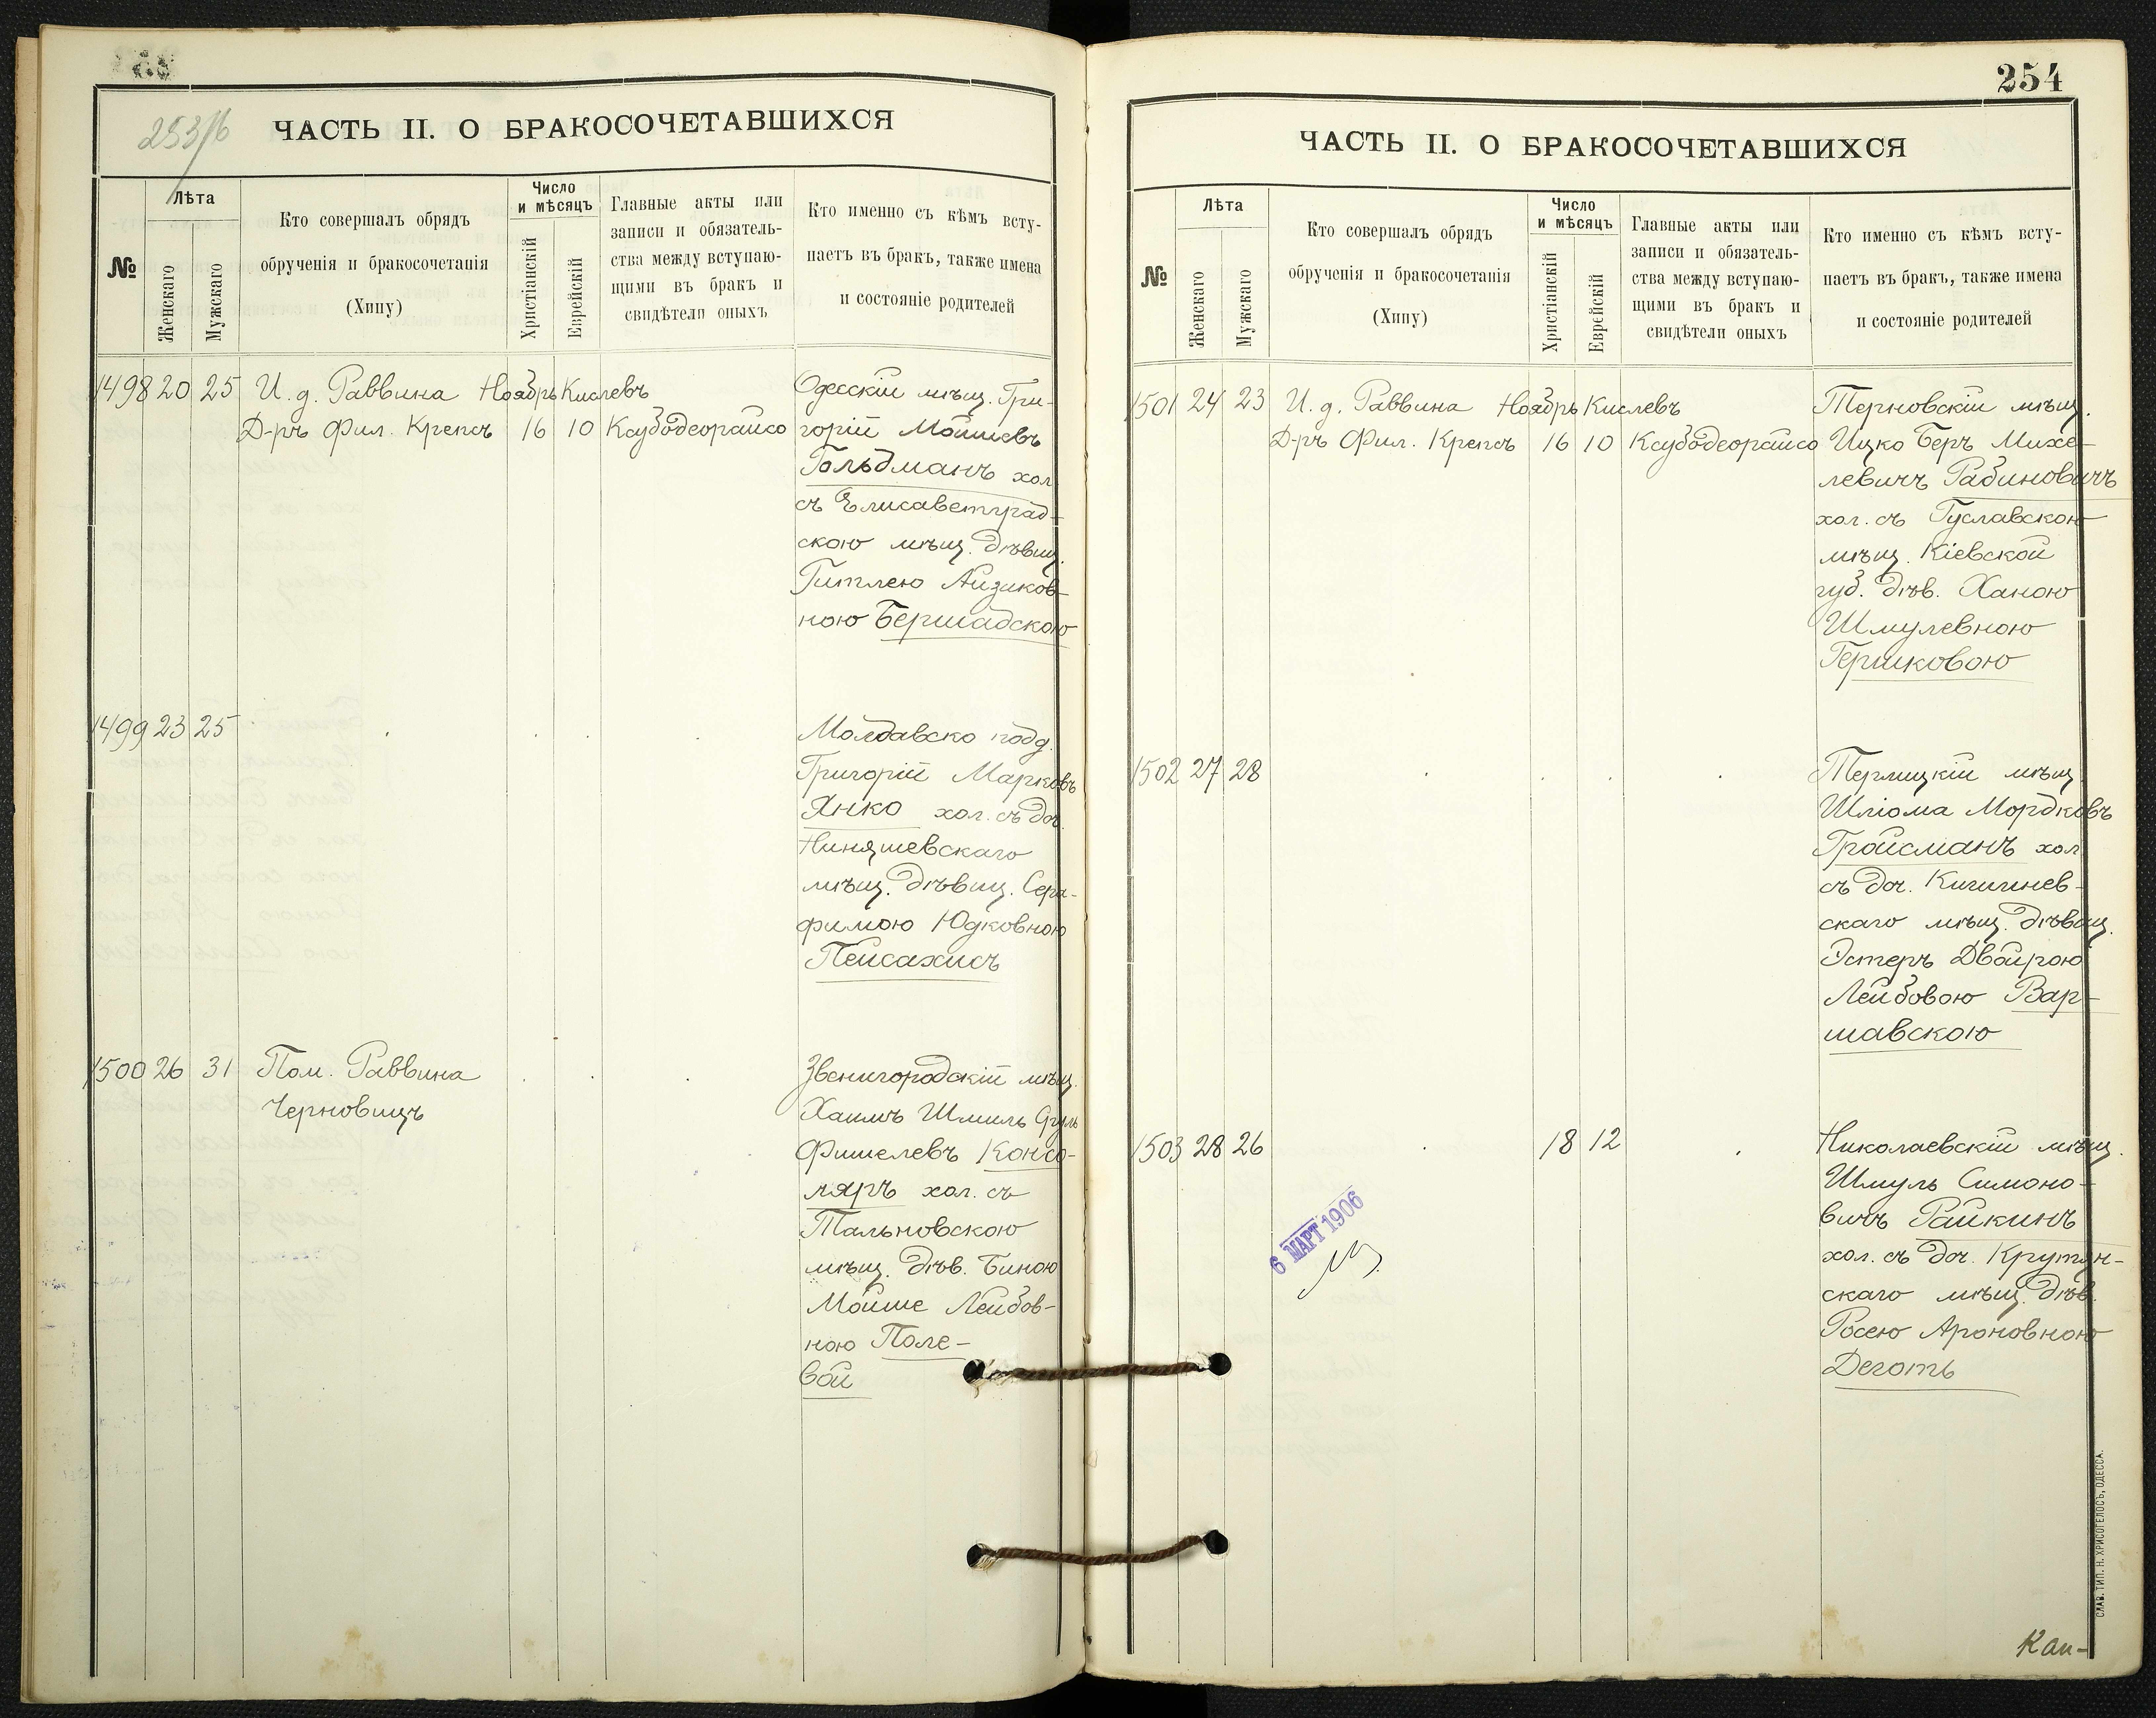 253/б
ЧАСТЬ II. О БРАКОСОЧЕТАВШИХСЯ
№
Лѣта
Женскаго
Мужскаго
Кто совершалъ обрядъ
обрученія и бракосочетанія
(Хипу)
Число
и мѣсяцъ
Христіанскій
Еврейскій
Главные акты или
записи и обязатель-
ства между вступаю-
щими въ бракъ и
свидѣтели оныхъ
Кто именно съ кѣмъ всту-
паетъ въ бракъ, также имена
и состояніе родителей
1498 20 25 И. д. Раввина Ноябрь Кислевъ
Д-ръ Фил. Крепсъ 16 10 Ксубодеорайсо
Одесскій мѣщ. Гри-
горій Мошкевъ
Гольдманъ хол.
съ Елисаветград-
скою мѣщ. дѣвиц.
Гитлею Айзиков-
ною Бершадскою
1499 23 25
Молдавско подд.
Григорій Марковъ
Янко хол. съ доч.
мѣщ. дѣвиц. Сера-
фимою Юдковною
Пейсахисъ
1500 26 31 Пом. Раввина
Черновицъ
Звенигородскій мѣщ.
Хаимъ Шмиль
Фишелевъ Консо-
ляръ хол. съ
Тальновскою
мѣщ. дѣв. Биною
Мойше Лейбов-
ною Поле-
вой
254
ЧАСТЬ II. О БРАКОСОЧЕТАВШИХСЯ
№
Лѣта
Женскаго
Мужскаго
Кто совершалъ обрядъ
обрученія и бракосочетанія
(Хипу)
Число
и мѣсяцъ
Христіанскій
Еврейскій
Главные акты или
записи и обязатель-
ства между вступаю-
щими въ бракъ и
свидѣтели оныхъ
Кто именно съ кѣмъ всту-
паетъ въ бракъ, также имена
и состояніе родителей
1501 24 23 И. д. Раввина Ноябрь Кислевъ
Д-ръ Фил. Крепсъ 16 10 Ксубодеорайсо
Терновскій мѣщ.
Ицко Беръ Михе-
левичъ Рабиновичъ
хол. съ Гуславскою
мѣщ. Кіевской
губ. дѣв. Ханою
Шмулевною
Гершковою
1502 27 28
Терлицкій мѣщ.
Шліома Мордковъ
Гройсманъ хол.
съ доч. Кишинев-
скаго мѣщ. дѣвиц.
Эстеръ Двойрою
Лейбовою Вар-
шавскою
1503 28 26 18 12
Николаевскій мѣщ.
Шмуль Симоно-
вичъ Райкинъ
хол. съ доч. Крутян-
скаго мѣщ. дѣв.
Росею Ароновною
Деготь
6 МАРТ 1906
Кан-
СЛАВ. ТИП. Н. ХРИСОГЕЛОСЪ, ОДЕССА.